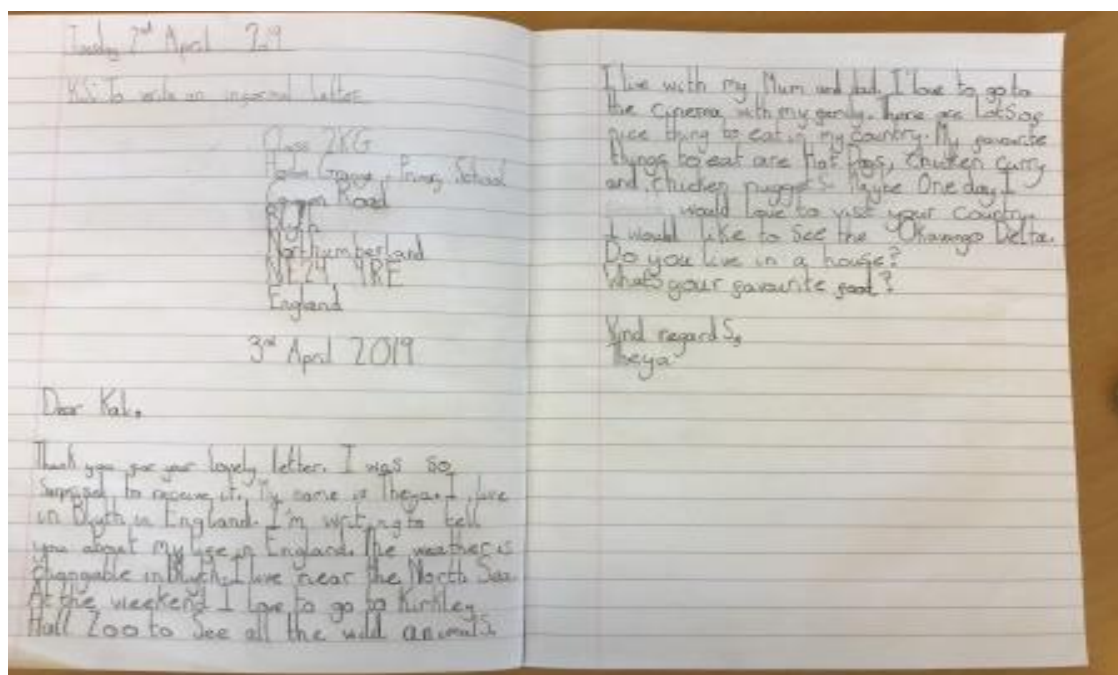 Tuesday 2nd April 2019
KS: To write an informal letter.
Class 2KG
Primary School
Road
Blyth
Northumberland
NE24 4RE
England
3rd April 2019
Dear Kal,
Thank you for your lovely letter. I was so
surprised to receive it. My name is Theya. I live
in Blyth in England. I'm writing to tell
you about my life in England. The weather is
changable in Blyth. I live near the North Sea.
At the weekend I love to go to Kirkley
Hall Zoo to See all the wild animals.
I live with my Mum and dad. I love to go to
the cinema with my family. There are Lots of
nice thing to eat in my country. My favourite
things to eat are Hot Dogs, Chicken curry
and, chicken nuggets. Maybe One day I
would love to visit your country.
I would like to See the Okavango Delta.
Do you live in a house?
Whats your favourite food?
Kind regards,
Theya